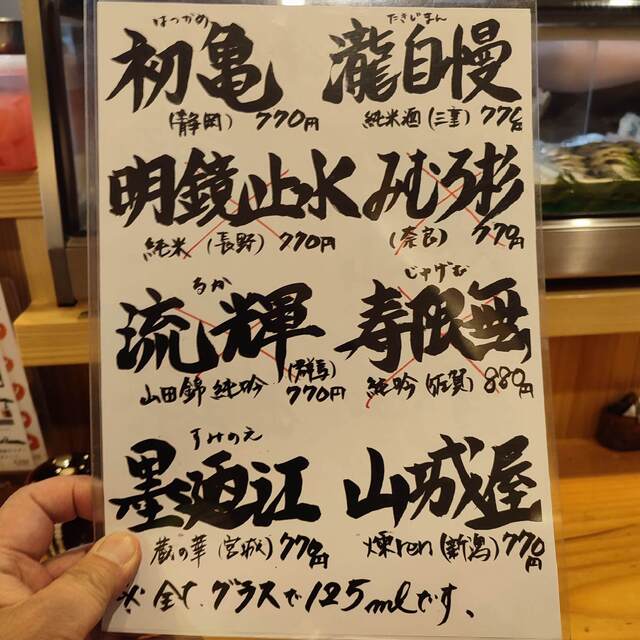 はつがめ たきじまん
初亀 瀧自慢
(静岡) 770円 純米酒 (三重) 770円
明鏡止水 みむろ杉
純米 (長野) 770円 (奈良) 770円
るか じゅげむ
流輝 寿限無
(群馬)
山田錦 純吟 770円 純吟 (佐賀) 880円
すみのえ
墨廼江 山城屋
蔵の華 (宮城) 770円 燻ren (新潟) 770円
※全て、グラスで125mlです、